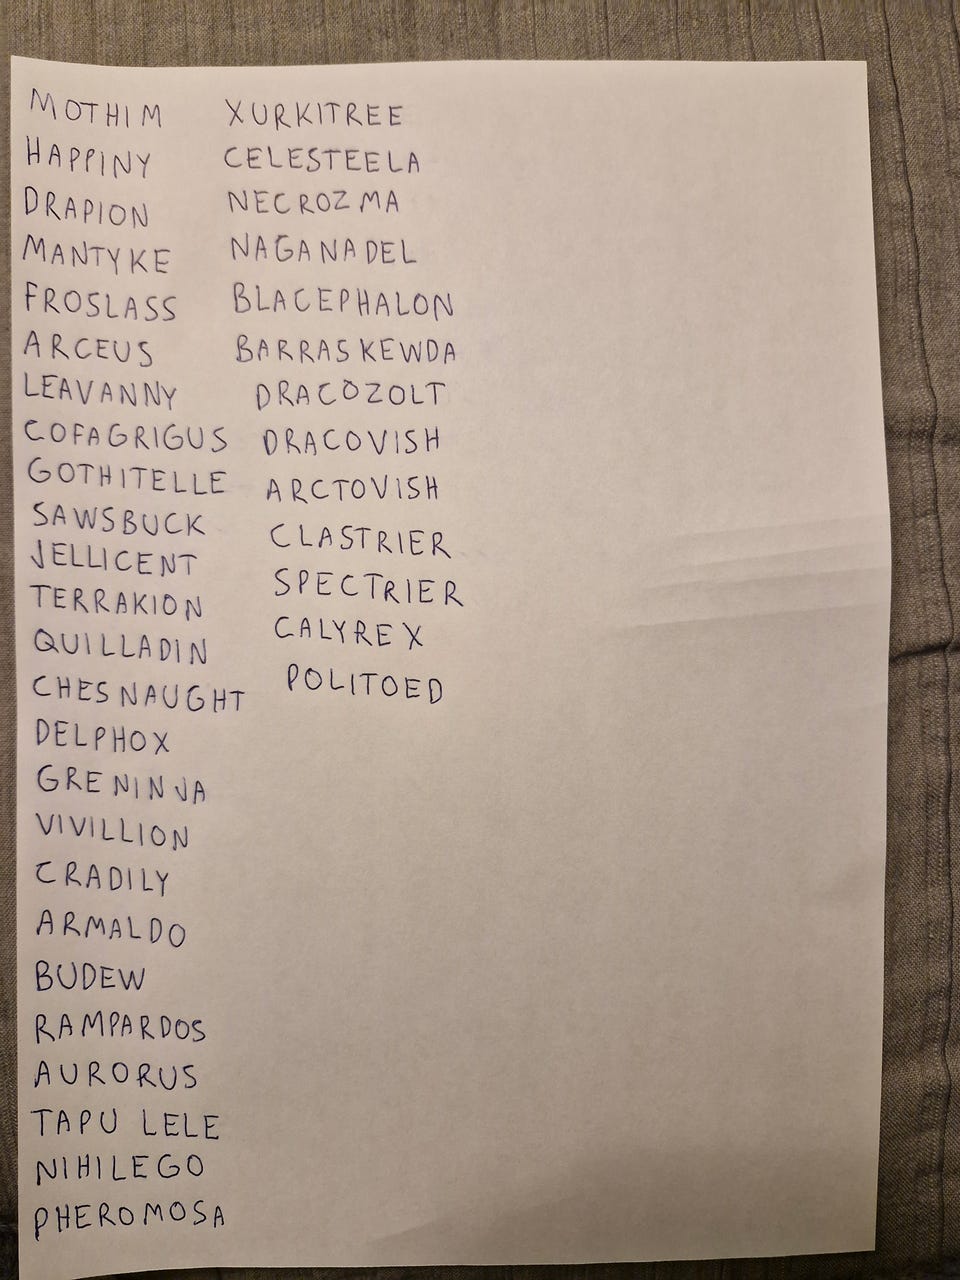 MOTHIM
HAPPINY
DRAPION
MANTYKE
FROSLASS
ARCEUS
LEAVANNY
COFAGRIGUS
GOTHITELLE
SAWSBUCK
JELLICENT
TERRAKION
QUILLADIN
CHESNAUGHT
DELPHOX
GRENINJA
VIVILLION
CRADILY
ARMALDO
BUDEW
RAMPARDOS
AURORUS
TAPU LELE
NIHILEGO
PHEROMOSA
XURKITREE
CELESTEELA
NECROZMA
NAGANADEL
BLACEPHALON
BARRASKEWDA
DRACOZOLT
DRACOVISH
ARCTOVISH
CLASTRIER
SPECTRIER
CALYREX
POLITOED